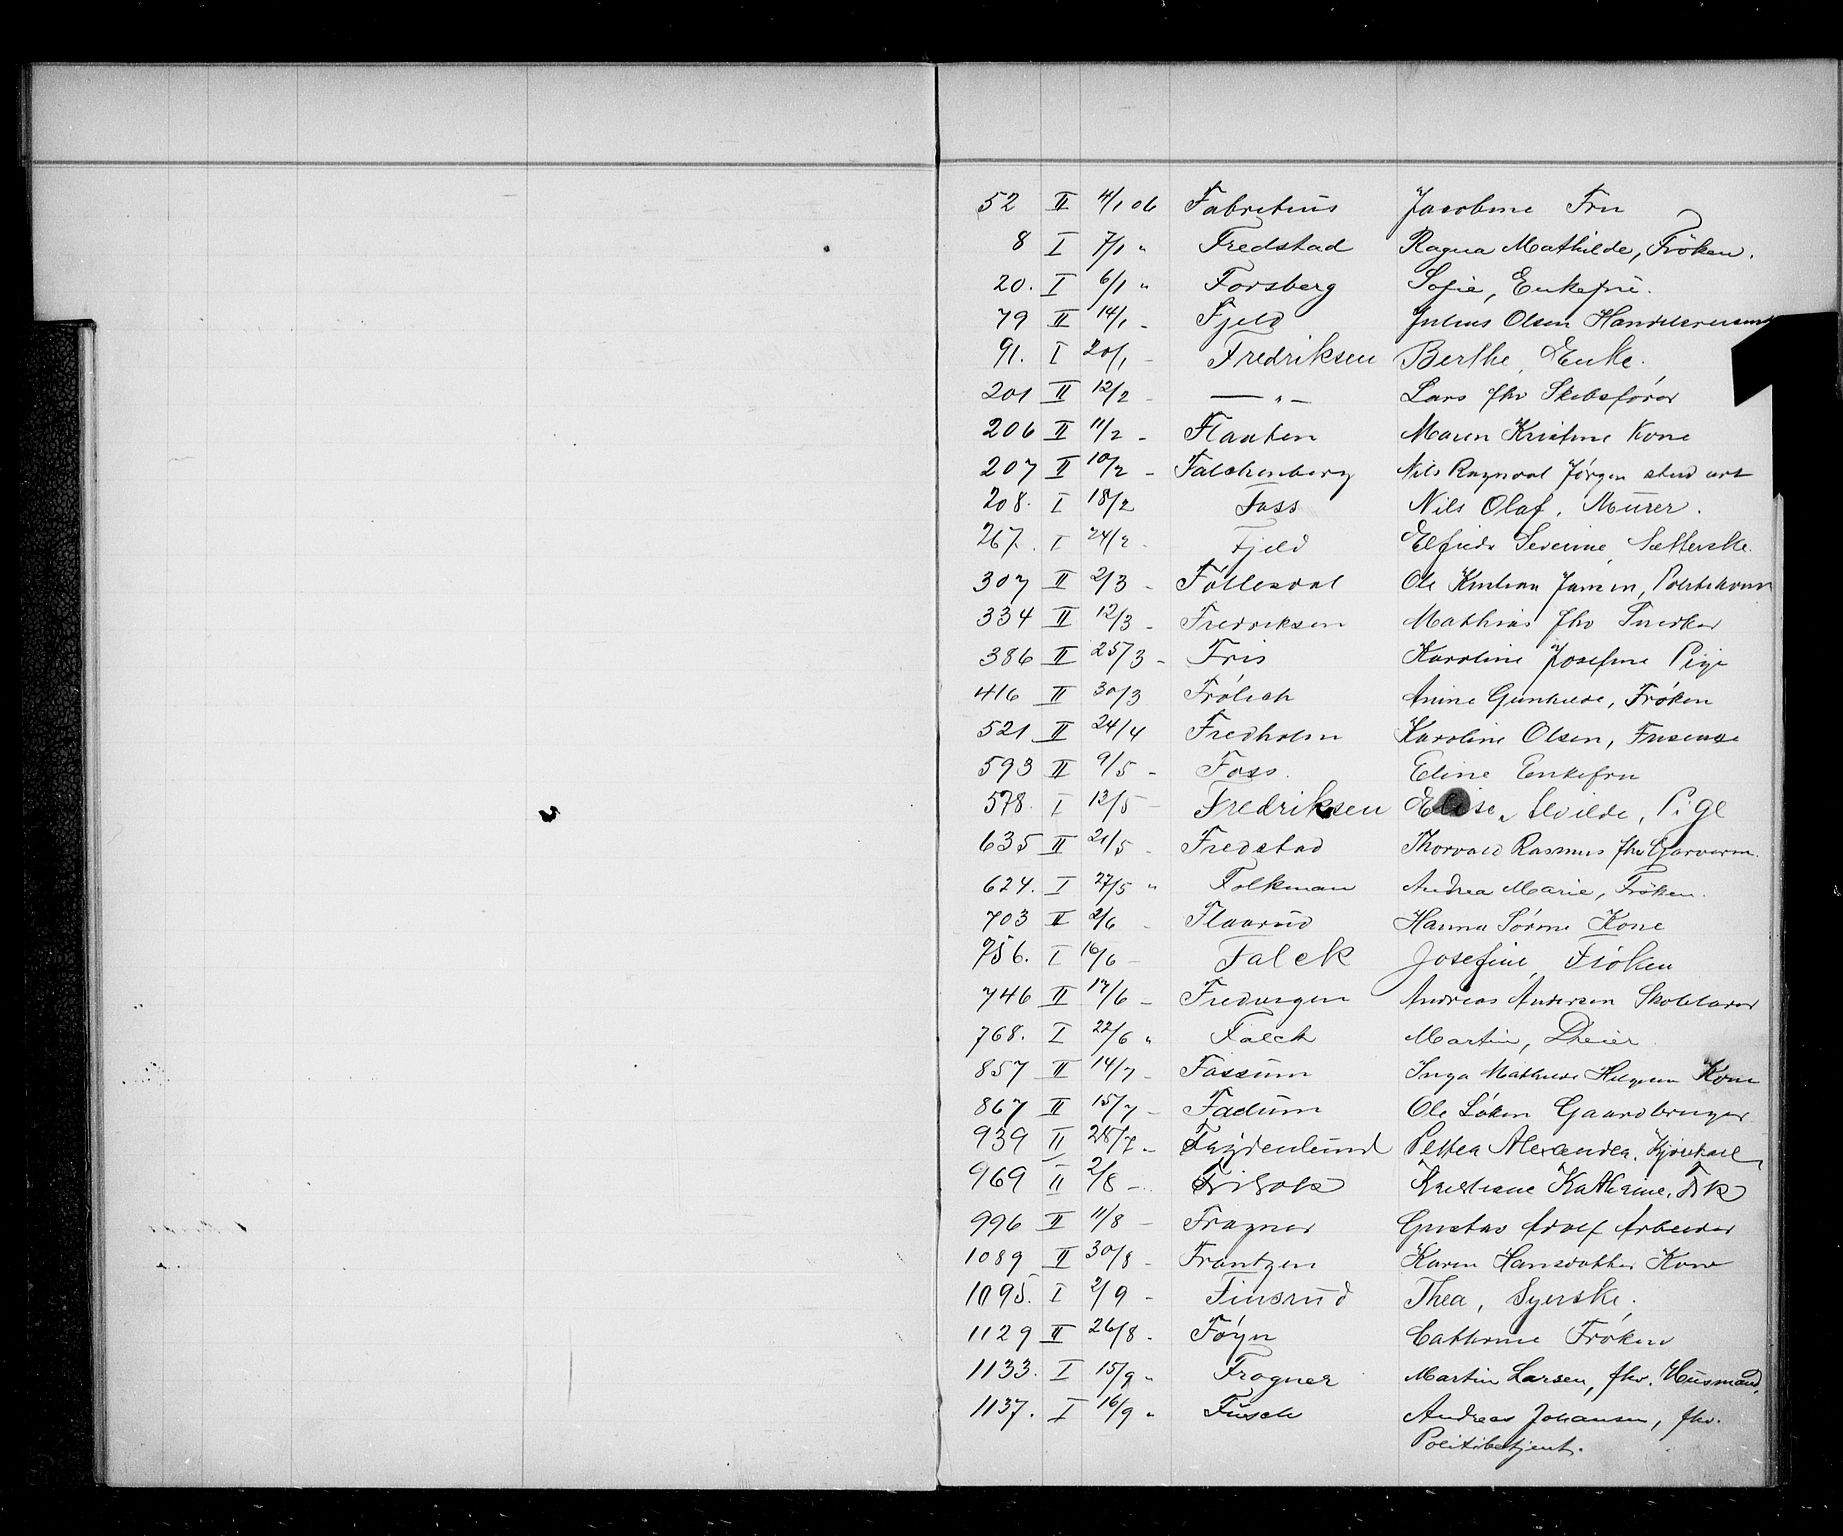 52 II 4/1 06 Fabretius Jacobine Fru
8 I 7/1 " Fredstad Ragna Mathilde, Frøken.
20. I 6/1 " Forsberg Sofie, Enkefrue.
79 II 14/1 - Fjeld Julius Olsen
91. I 20/1 - Fredriksen Berthe, Enke.
201 II 12/2 - — " — Lars fhv Skibsfører
206 II 11/2 - Flaaten Maren Kristine Kone
207 II 10/2 - Falchenberg Nils Ragnval Jørgen stud art
208. I 18/2 Foss Nils Olaf, Murer.
267. I 24/2 - Fjeld Elfrida Severine, Sætterske.
307 II 2/3 - Follesdal Ole Kristian Jansen,
334 II 12/3 - Fredriksen Mathias fhv Snedker
386 II 25/3 - Friis Karoline Josefine Pige
416 II 30/3 Frølich Anine Gunhilde, Frøken
521 II 24/4 Fredholm Karoline Olsen,
593 II 9/5 - Foss. Eline Enkefru
578. I 13/5 - Fredriksen Elise, Alvilde, Pige
635 II 21/5 - Fredstad Thorvald Rasmus fhv Garverm.
624. I 27/5 " Folkman Andrea Marie, Frøken.
703 II 2/6 - Flaarud Hanna Sørine Kone
756. I 16/6 - Falck Josefine, Frøken
746 II 17/6 - Fredvigen Andreas Andersen Skolelærer
768. I 22/6 " Falck Martin, Dreier.
857 II 14/7 - Fossum Inga Mathilde Kone
867 II 15/7 - Fadum Ole Søren Gaardbruger
939 II 28/7 - Frydenlund Petrea Alexandra,
969 II 2/8 - Kristiane Kathrine, Frk
996 II 11/8 - Frogner Gustav Adolf Arbeider
1089 II 30/8 - Frantzen Karen Hansdatter Kone
1095. I 2/9 - Finsrud Thea, Syerske.
1129 II 26/8 - Føyn Cathrine Frøken
1133. I 15/9 " Frogner Martin Larsen, fhv. Husmand.
1137. I 16/9 " Fusch Andreas Johansen, fhv.
Politibetjent.